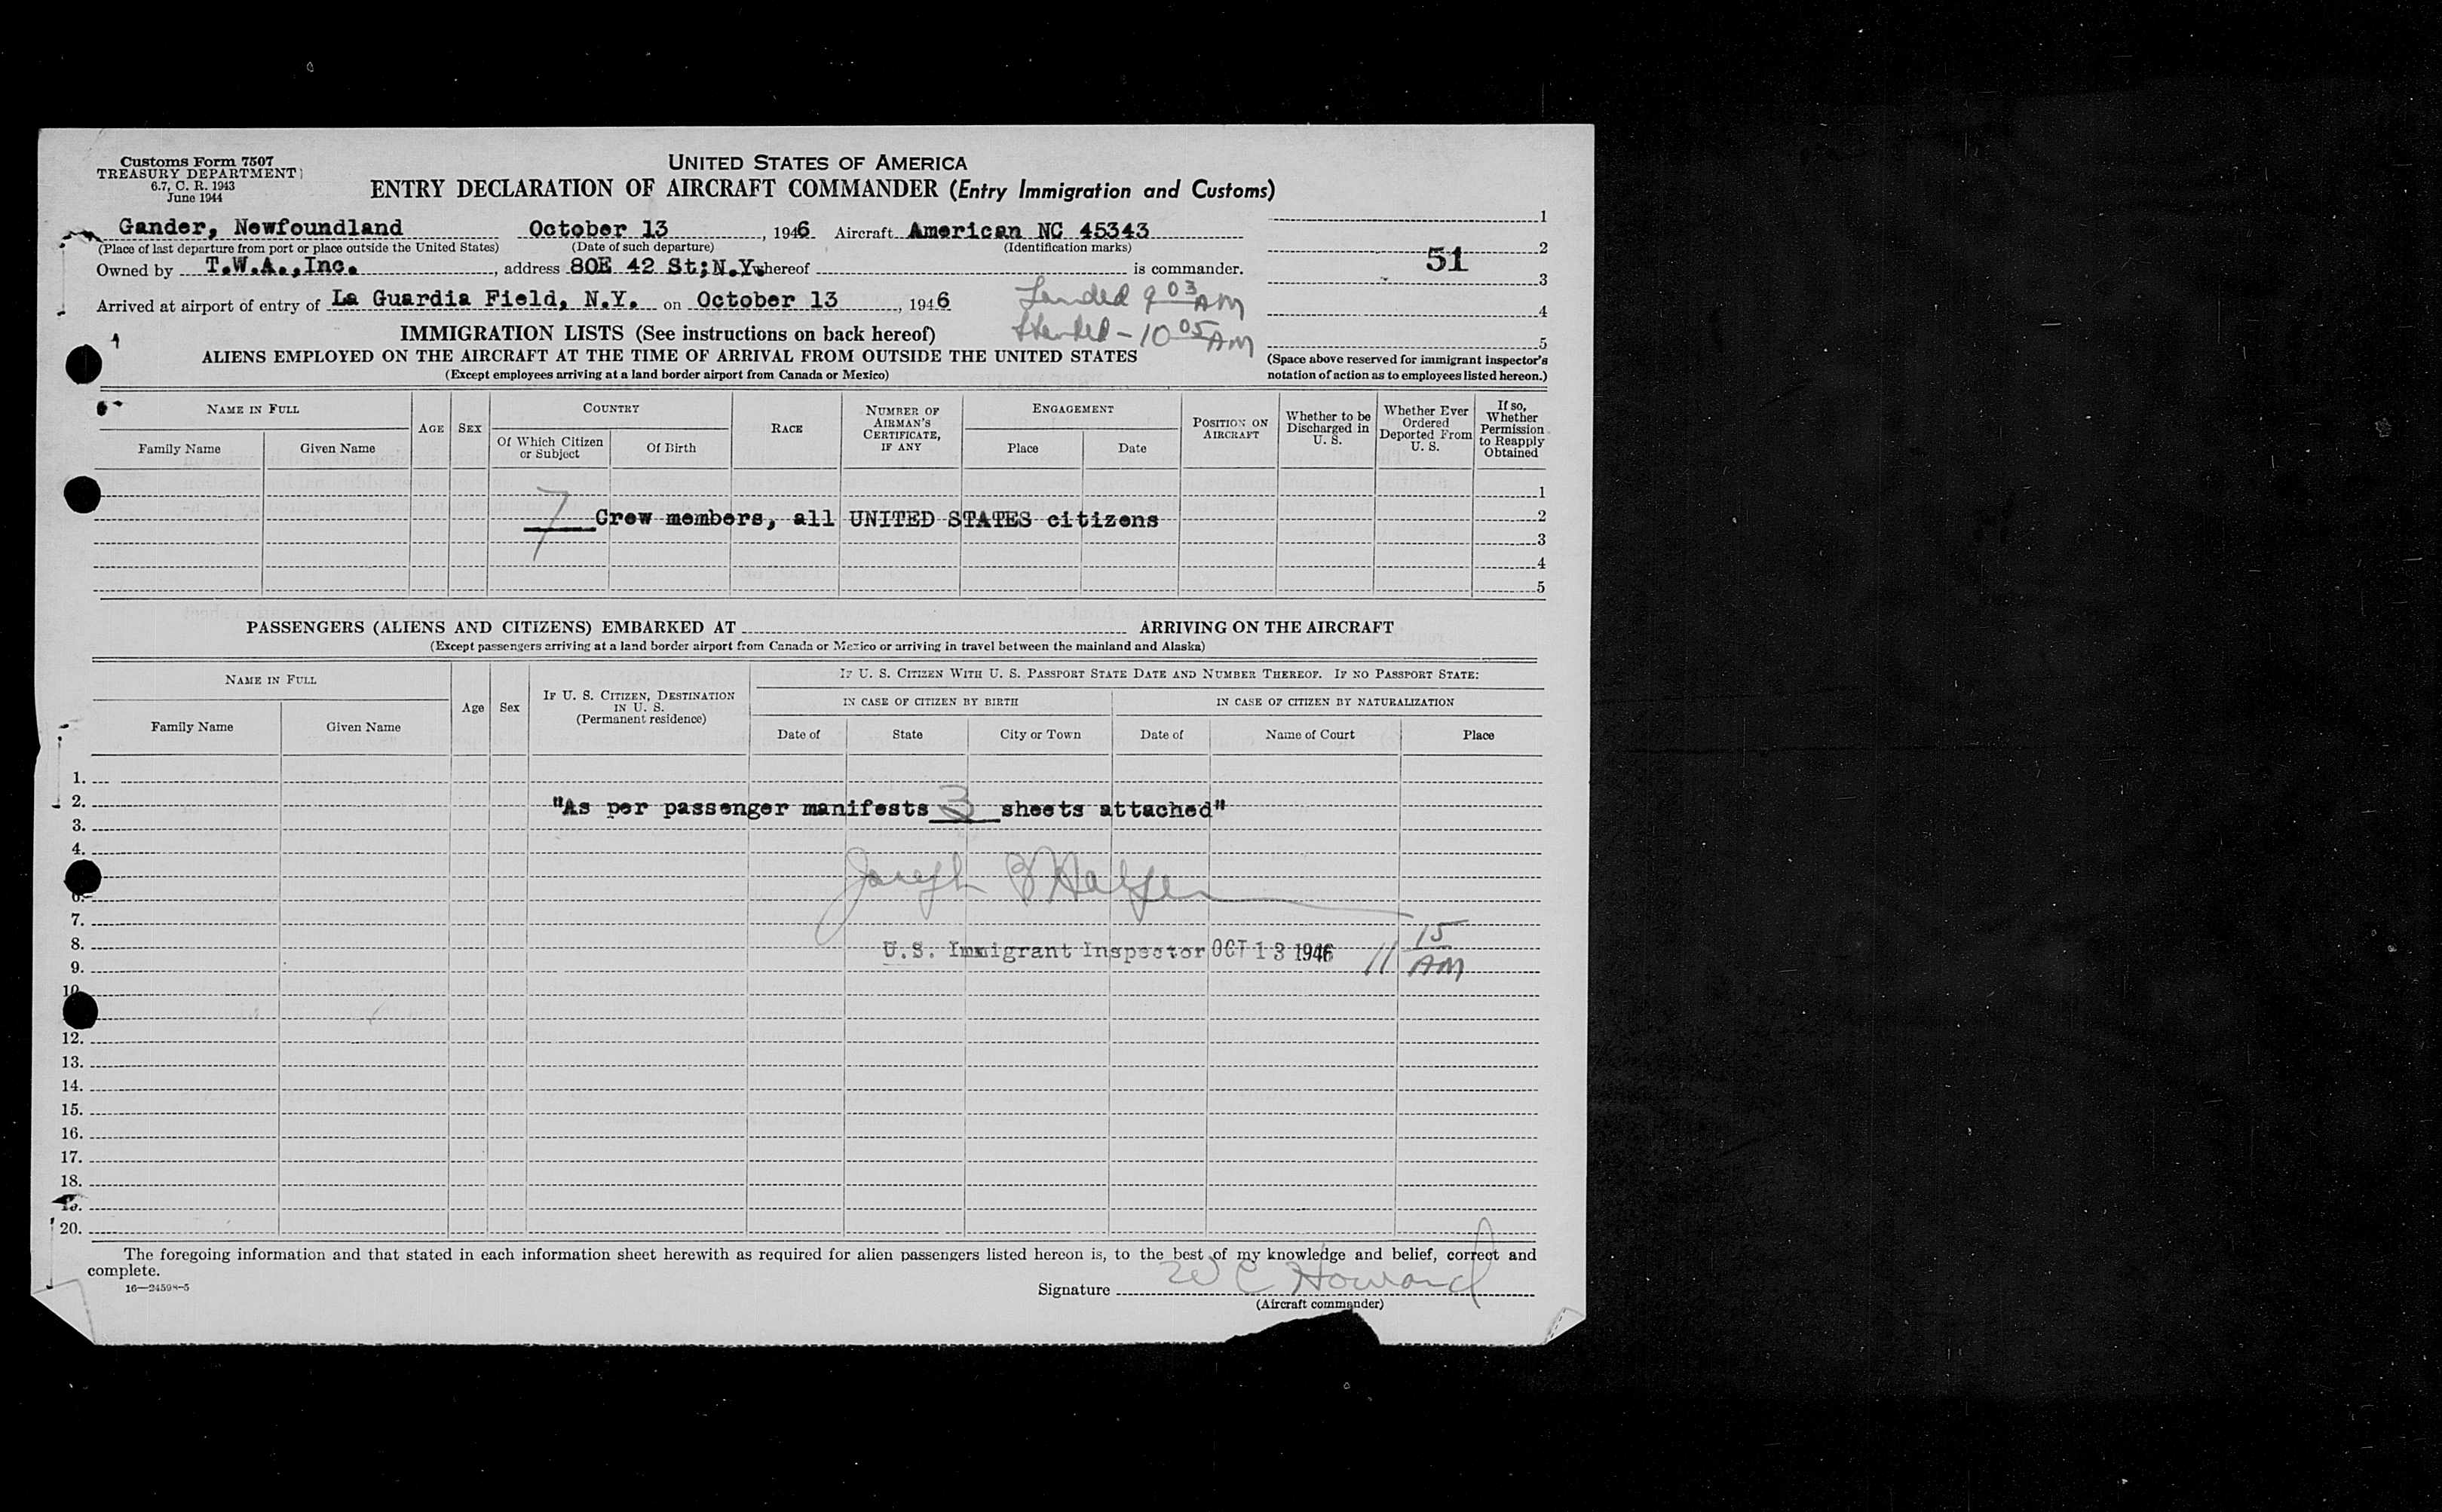 Customs Form 7507
TREASURY DEPARTMENT
6.7, C. R. 1943
June 1944
UNITED STATES OF AMERICA
ENTRY DECLARATION OF AIRCRAFT COMMANDER (Entry Immigration and Customs)
Gander, Newfoundland October 13, 1946 Aircraft American NC 45343
(Place of last departure from port or place outside the United States) (Date of such departure) (Identification marks)
Owned by T.W.A.,Inc., address 80E 42 St;N.Y. whereof is commander.
Arrived at airport of entry of La Guardia Field, N.Y. on October 13, 1946
Landed 9 03 AM
10 05 AM
1
2
51
3
4
5
(Space above reserved for immigrant inspector's
notation of action as to employees listed hereon.)
IMMIGRATION LISTS (See instructions on back hereof)
ALIENS EMPLOYED ON THE AIRCRAFT AT THE TIME OF ARRIVAL FROM OUTSIDE THE UNITED STATES
(Except employees arriving at a land border airport from Canada or Mexico)
NAME IN FULL
Family Name
Given Name
AGE
SEX
COUNTRY
Of Which Citizen or Subject
Of Birth
RACE
NUMBER OF AIRMAN'S CERTIFICATE, IF ANY
ENGAGEMENT
Place
Date
POSITION ON AIRCRAFT
Whether to be Discharged in U. S.
Whether Ever Ordered Deported From U. S.
If so, Whether Permission to Reapply Obtained
1
7 Crew members, all UNITED STATES citizens 2
3
4
5
PASSENGERS (ALIENS AND CITIZENS) EMBARKED AT ARRIVING ON THE AIRCRAFT
(Except passengers arriving at a land border airport from Canada or Mexico or arriving in travel between the mainland and Alaska)
NAME IN FULL
Family Name
Given Name
Age
Sex
IF U. S. CITIZEN, DESTINATION IN U. S.
(Permanent residence)
IF U. S. CITIZEN WITH U. S. PASSPORT STATE DATE AND NUMBER THEREOF. IF NO PASSPORT STATE:
IN CASE OF CITIZEN BY BIRTH
IN CASE OF CITIZEN BY NATURALIZATION
Date of
State
City or Town
Date of
Name of Court
Place
1.
2. "As per passenger manifests 3 sheets attached"
3.
4.
Joseph
6.
7.
8. U.S. Immigrant Inspector OCT 13 1946 11 15 AM
9.
10
12.
13.
14.
15.
16.
17.
18.
19.
20.
The foregoing information and that stated in each information sheet herewith as required for alien passengers listed hereon is, to the best of my knowledge and belief, correct and
complete.
16—24598-5
Signature W C Howard
(Aircraft commander)